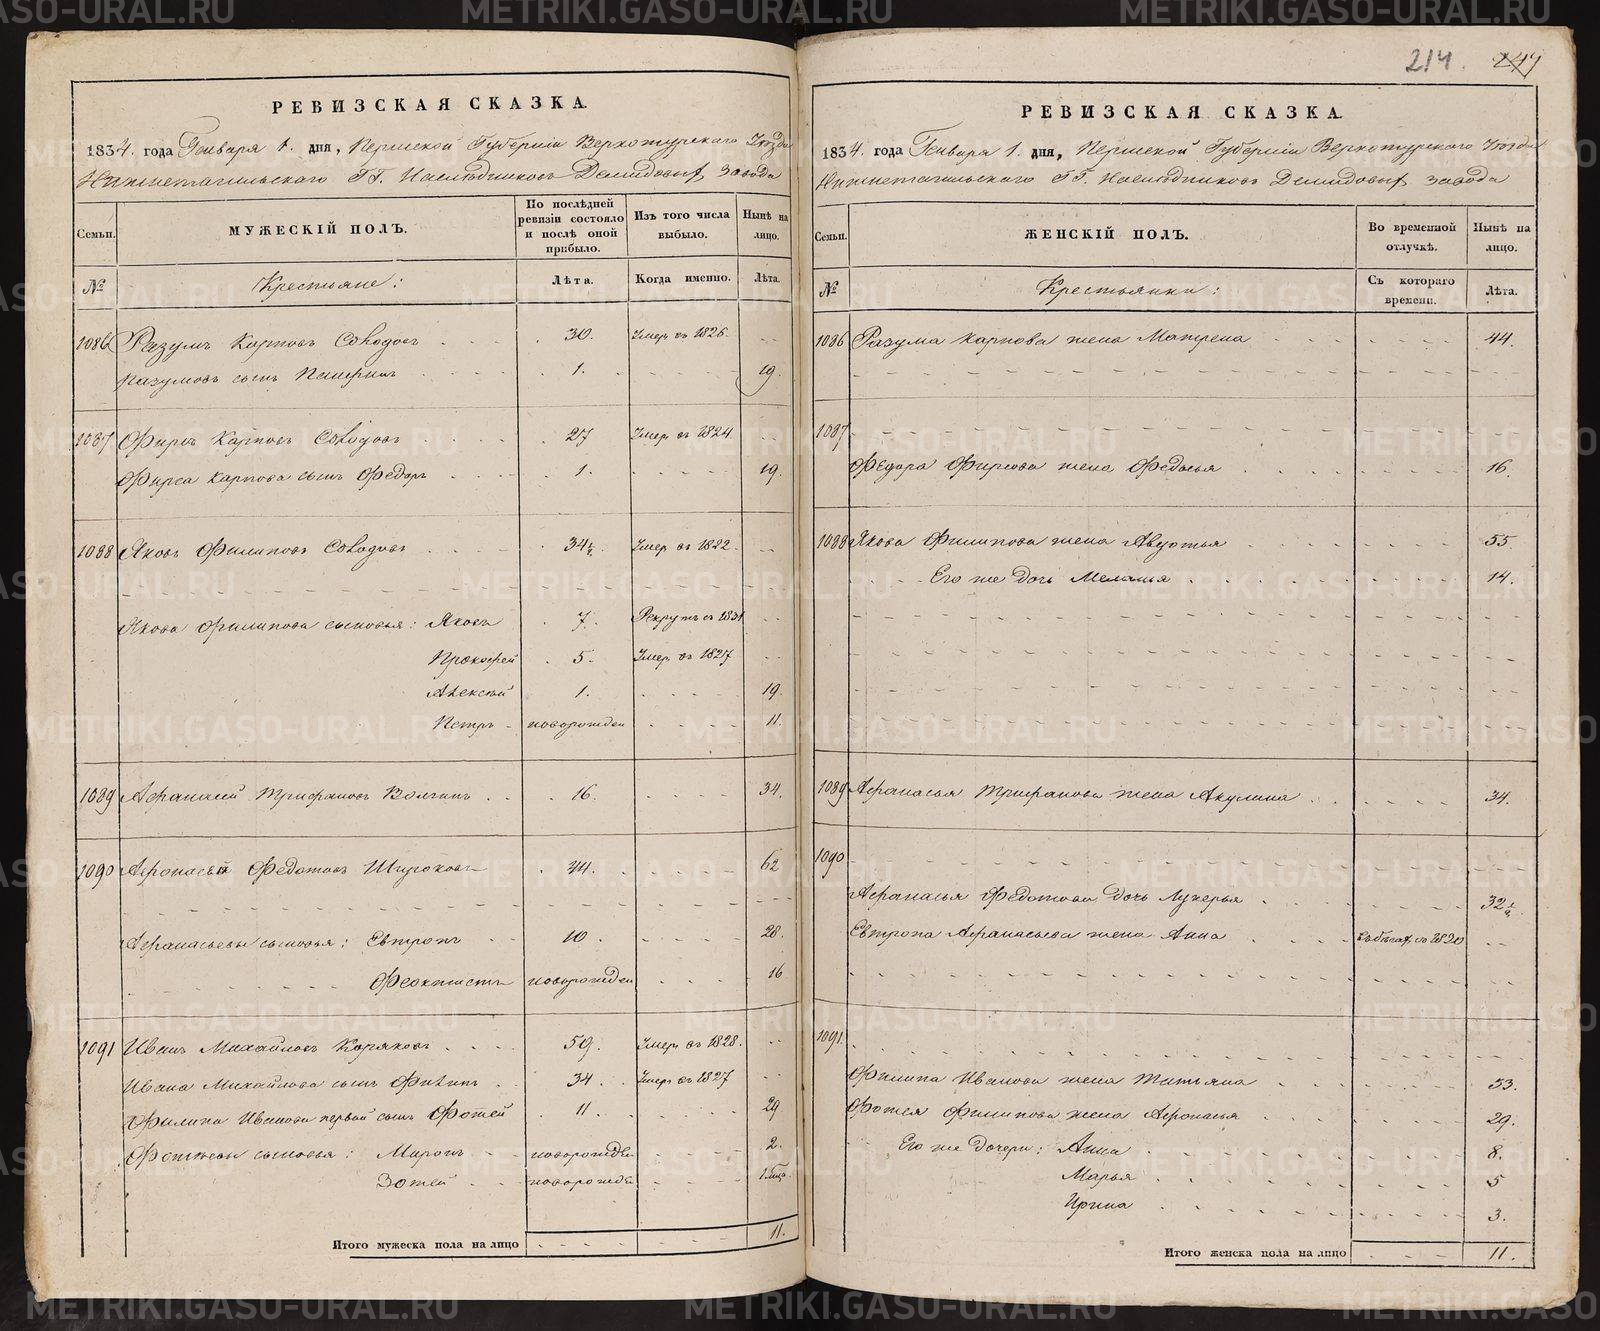 214. 247
РЕВИЗСКАЯ СКАЗКА.
1834. года Генваря 1. дня, Пермской Губерніи Верхотурскаго Уѣзда
Нижнетагильскаго ГГ. Наслѣдниковъ Демидовыхъ Завода
Семьи. МУЖЕСКІЙ ПОЛЪ. По послѣдней ревизіи состояло и послѣ оной прибыло. Изъ того числа выбыло. Нынѣ на лицо.
№ Крестьяне: Лѣта. Когда именно. Лѣта.
1086 Разумъ Карповъ Солодовъ 30. Умер. въ 1826.
Разумовъ сынъ 1. 19.
1087 Фирсъ Карповъ Солодовъ 27 Умер. въ 1824.
Фирса Карпова сынъ Федоръ 1. 19.
1088 Яковъ Филиповъ Солодовъ 34½ Умер. въ 1822.
Якова Филипова сыновья: Яковъ 7. Рекрут. въ 1831
Прокофей 5. Умер. въ 1827
Алексѣй 1. 19.
Петръ новорожден 11.
1089 Афанасей Трифановъ Волгинъ 16. 34.
1090 Афонасей Федотовъ Широковъ 44. 62
Афанасьевы сыновья: Евтропъ 10. 28.
Феоктистъ новорожден 16
1091 Иванъ Михайловъ Каряковъ 59. Умер. въ 1828.
Ивана Михайлова сынъ Филипъ 34. Умер. въ 1827
Филипа Иванова первой сынъ Фотей 11. 29
Фотѣевы сыновья: Миронъ новорожден 2.
Зотей новорожден 1 мѣц.
Итого мужеска пола на лицо 11.
РЕВИЗСКАЯ СКАЗКА.
1834. года Генваря 1. дня, Пермской Губерніи Верхотурскаго Уѣзда
Нижнетагильскаго ГГ. Наслѣдниковъ Демидовыхъ Завода
Семьи. ЖЕНСКІЙ ПОЛЪ. Во временной отлучкѣ. Нынѣ на лицо.
№ Крестьянки: Съ котораго времени. Лѣта.
1086 Разума Карпова жена Матрена 44.
1087
Федора Фирсова жена Федосья 16.
1088 Якова Филипова жена Авдотья 55.
Его же дочь Меланья 14.
1089 Афанасья Трифанова жена Акулина 34.
1090
Афанасья Федотова дочь Лукерья 32½
Евтропа Афанасьева жена Анна въ бѣгах съ 1830
1091.
Филипа Иванова жена Татьяна 53.
Фотея Филипова жена Афонасья 29.
Его же дочери: Анна 8.
Марья 5
Ирина 3.
Итого женска пола на лицо 11.
METRIKI.GASO-URAL.RU